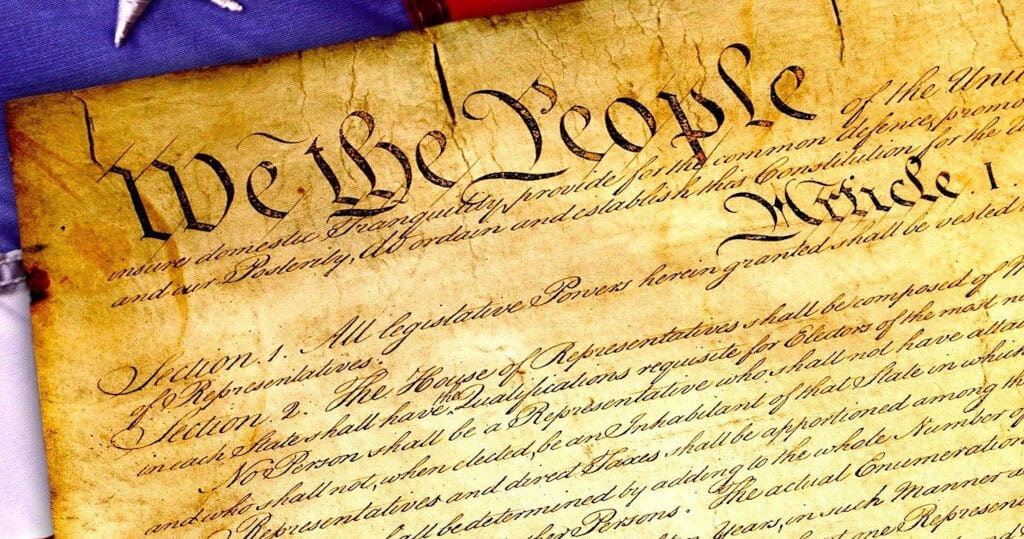 We the People of the Uni
insure domestic Tranquility, provide for the common defence, promo
and our Posterity, do ordain and establish this Constitution for the U
Article. I.
Section. 1. All legislative Powers herein granted shall be vested
of Representatives.
Section. 2. The House of Representatives shall be composed of M
in each State shall have the Qualifications requisite for Electors of the most n
No Person shall be a Representative who shall not have attai
and who shall not, when elected, be an Inhabitant of that State in which
Representatives and direct Taxes shall be apportioned among th
all be determined by adding to the whole Number of
her Persons. The actual Enumeration
Years, in such Manner
one Represen